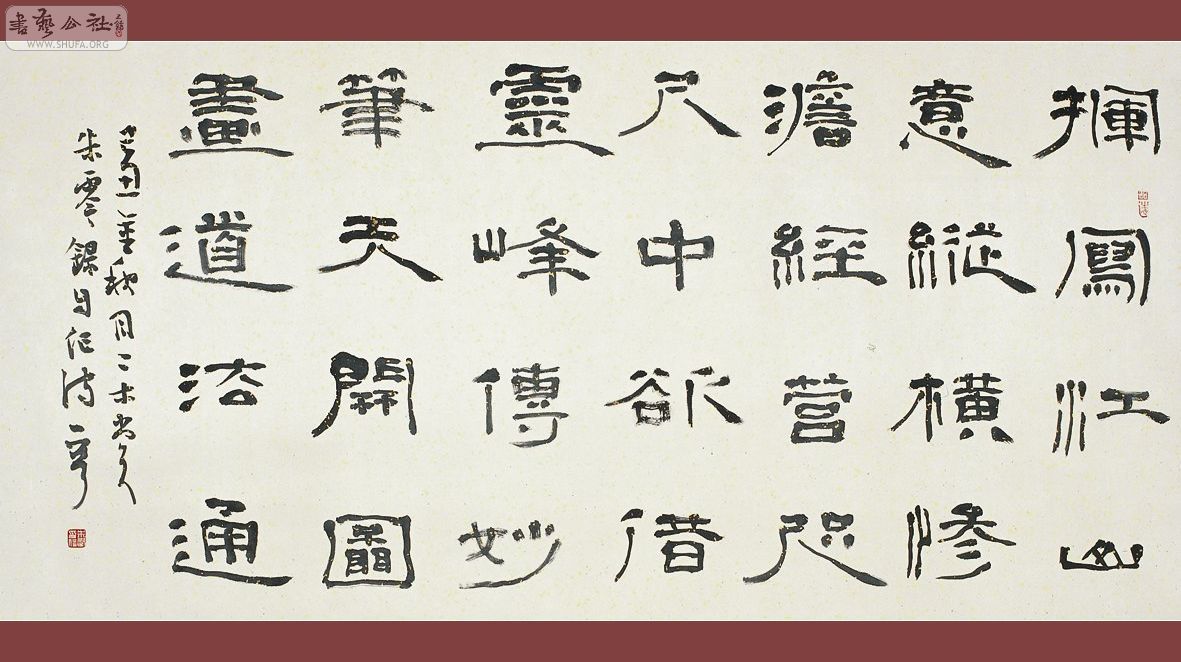 書藝公社
WWW.SHUFA.ORG
揮寫江山
意縱橫慘
澹經營咫
尺中欲借
靈峰傳妙
筆天開圖
畫道法通
錄自作詩